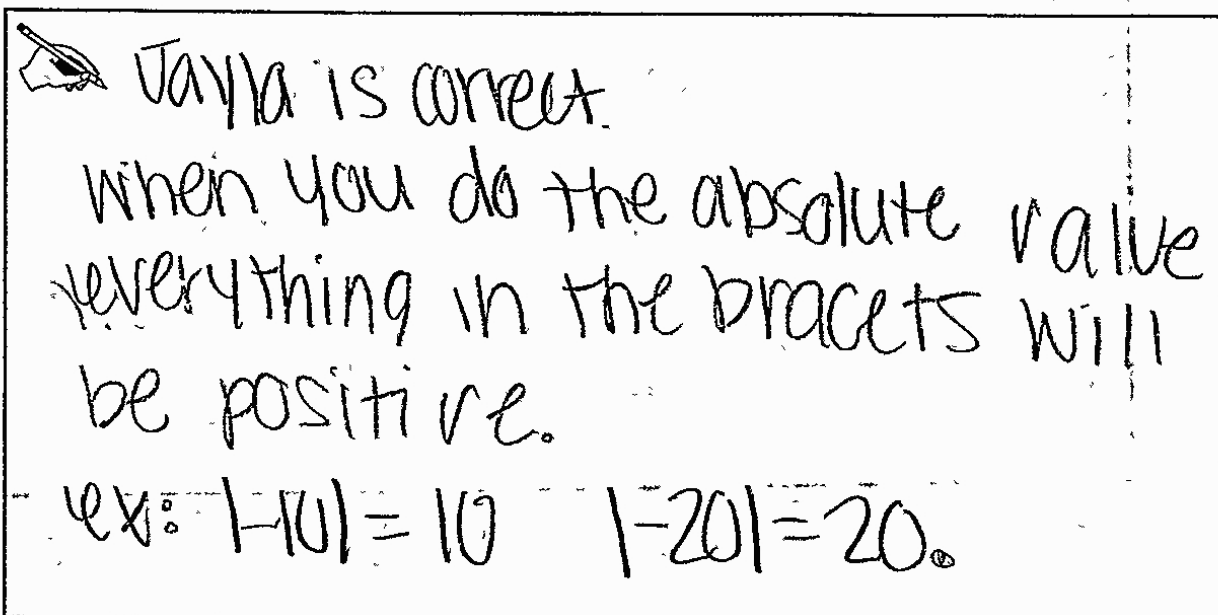 Jayla is correct.
when you do the absolute value
everything in the bracets will
be positive.
ex: |-10| = 10 |-20| = 20.